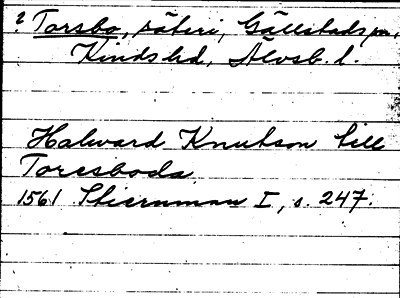 ? Torsbo, säteri, Gällstads sn,
Kinds hd, Älvsb. l.
Halward Knutson till
Toresboda
1561 Stiernman I, s. 247.